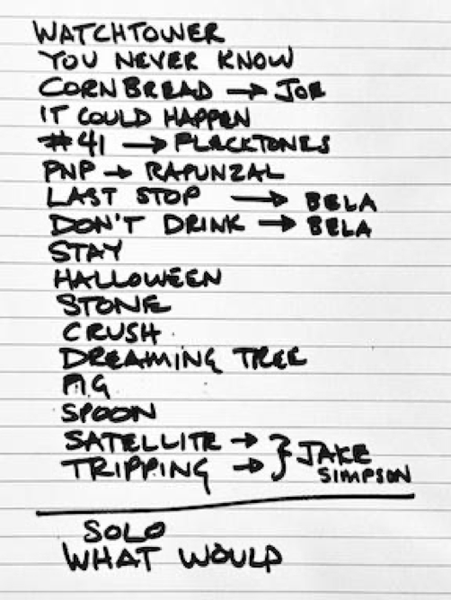 WATCHTOWER
YOU NEVER KNOW
CORNBREAD → JOE
IT COULD HAPPEN
#41 → FLECKTONES
PNP → RAPUNZAL
LAST STOP → BELA
DON'T DRINK → BELA
STAY
HALLOWEEN
STONE
CRUSH
DREAMING TREE
PIG
SPOON
SATELLITE → } JAKE
TRIPPING → } SIMPSON
SOLO
WHAT WOULD